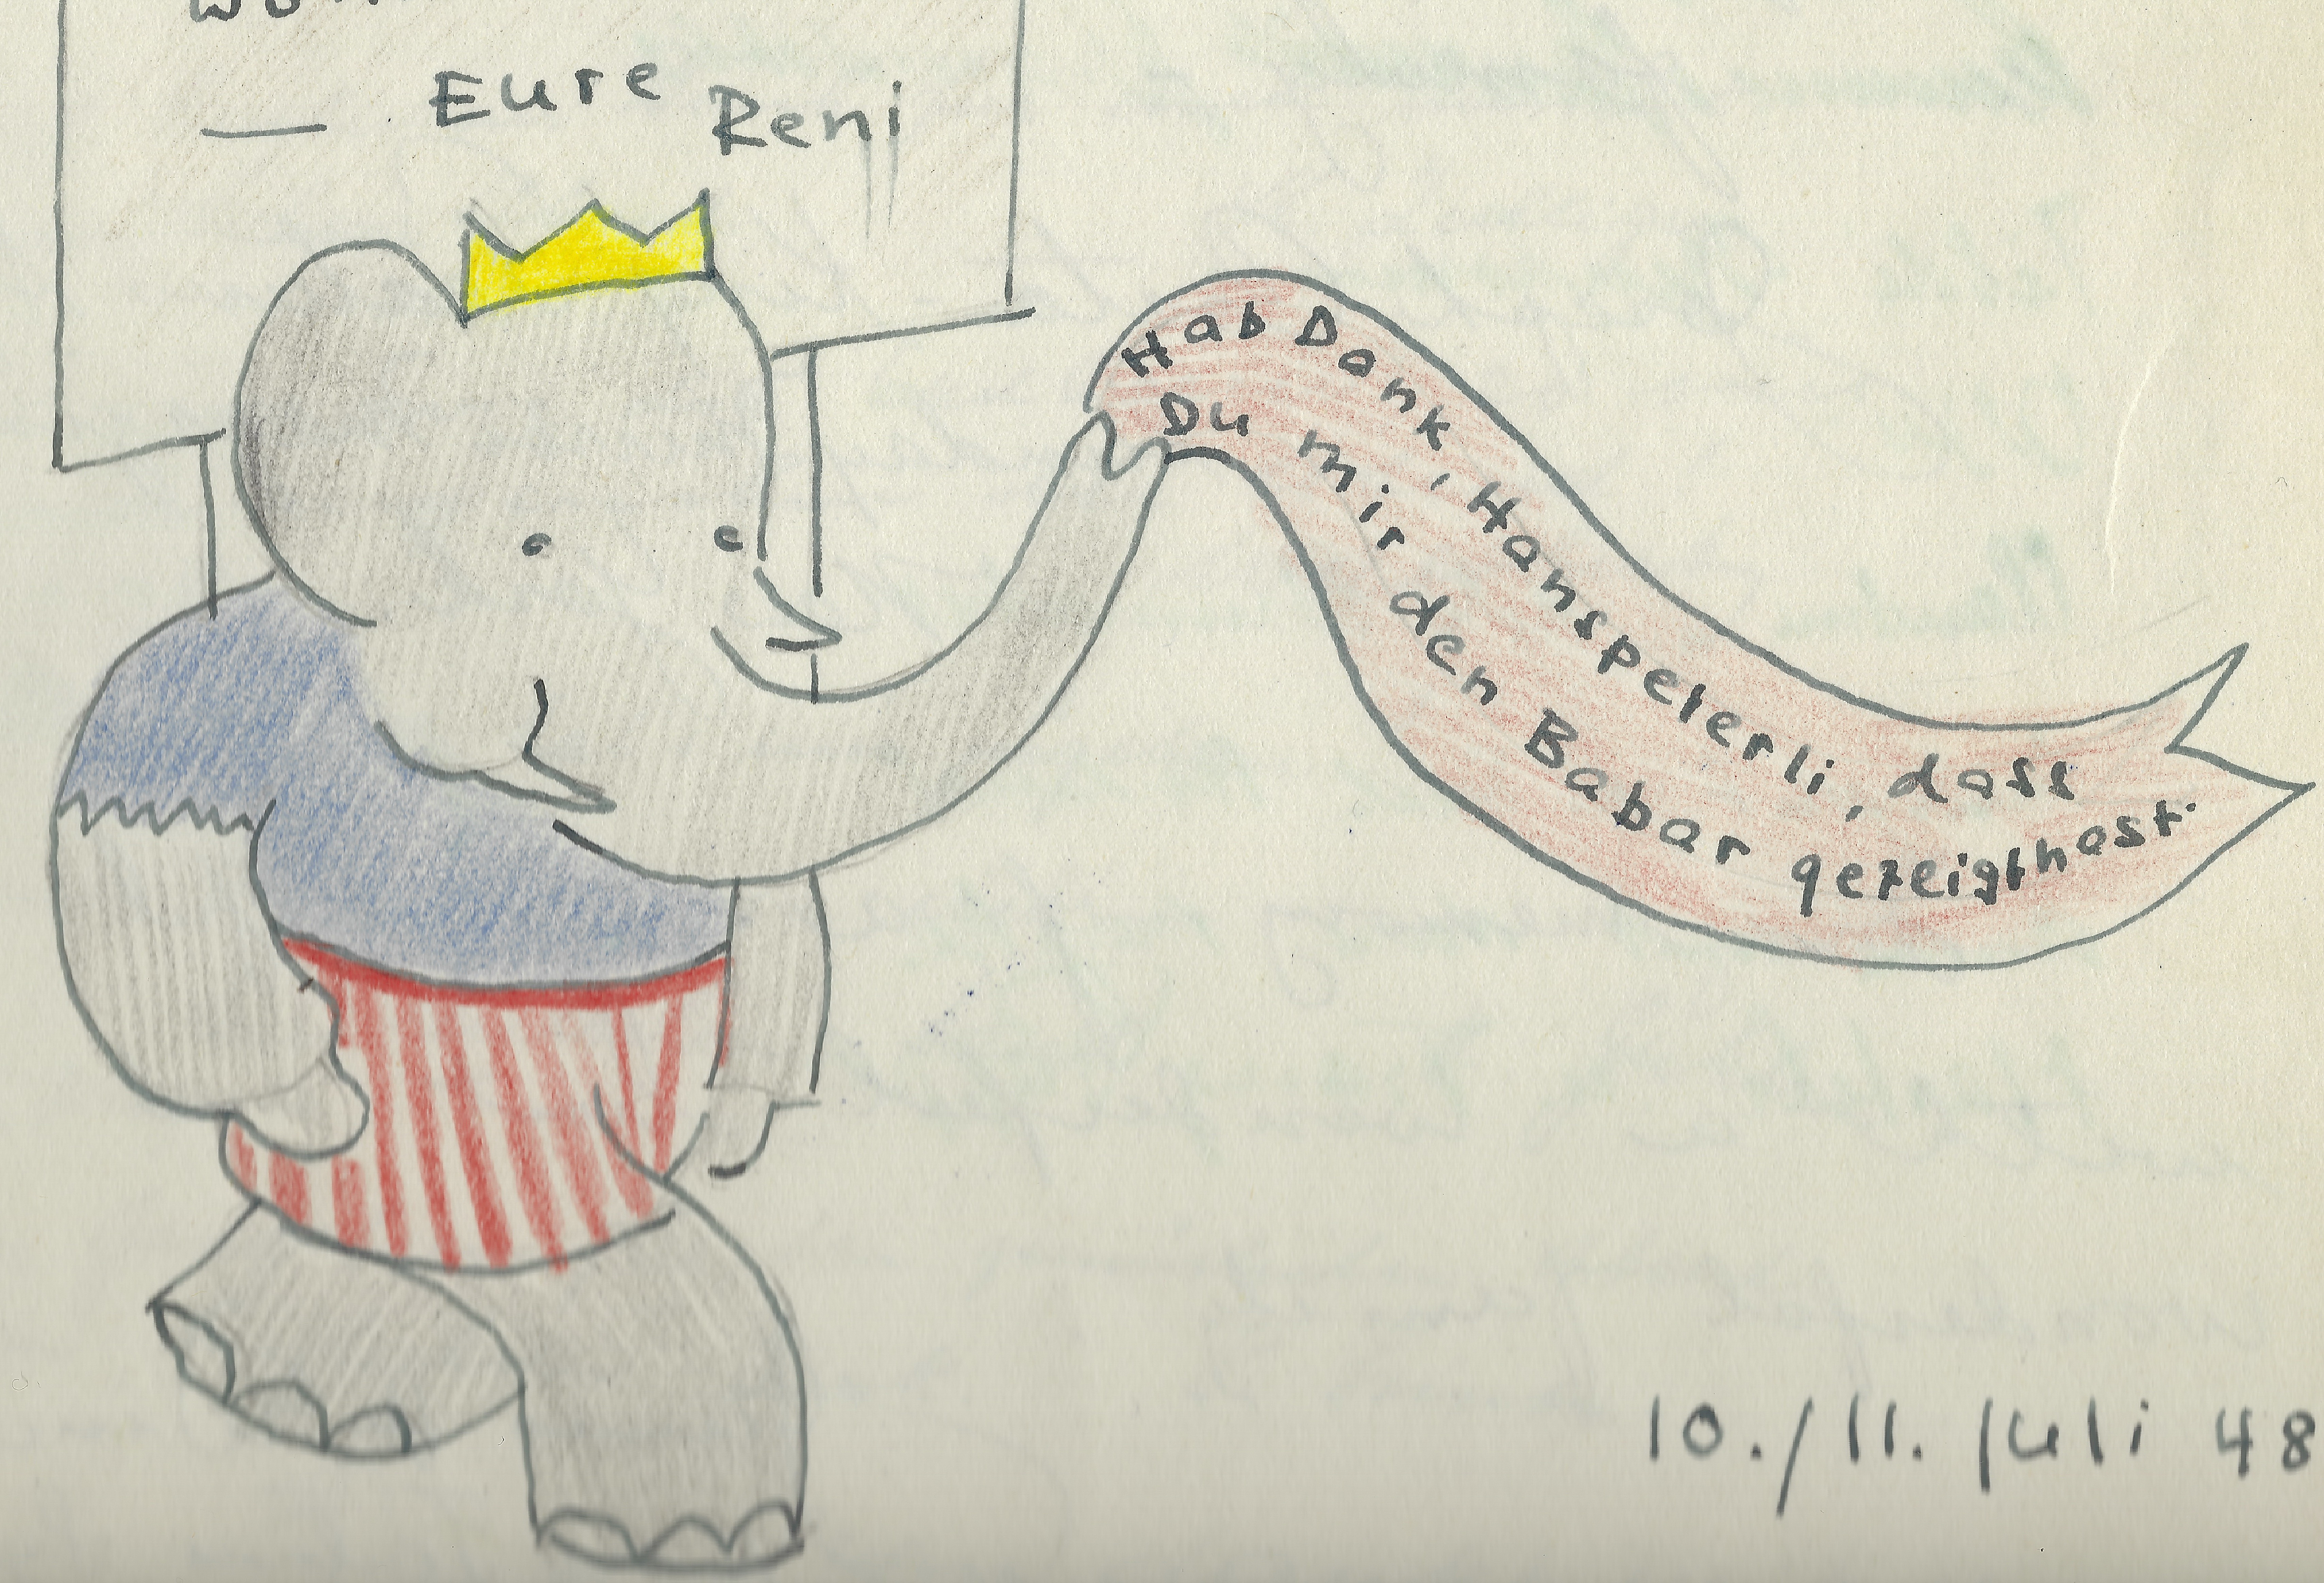 — Eure Reni
Hab Dank, Hanspeterli, dass
Du mir den Babar gezeigt hast.
10./11. Juli 48